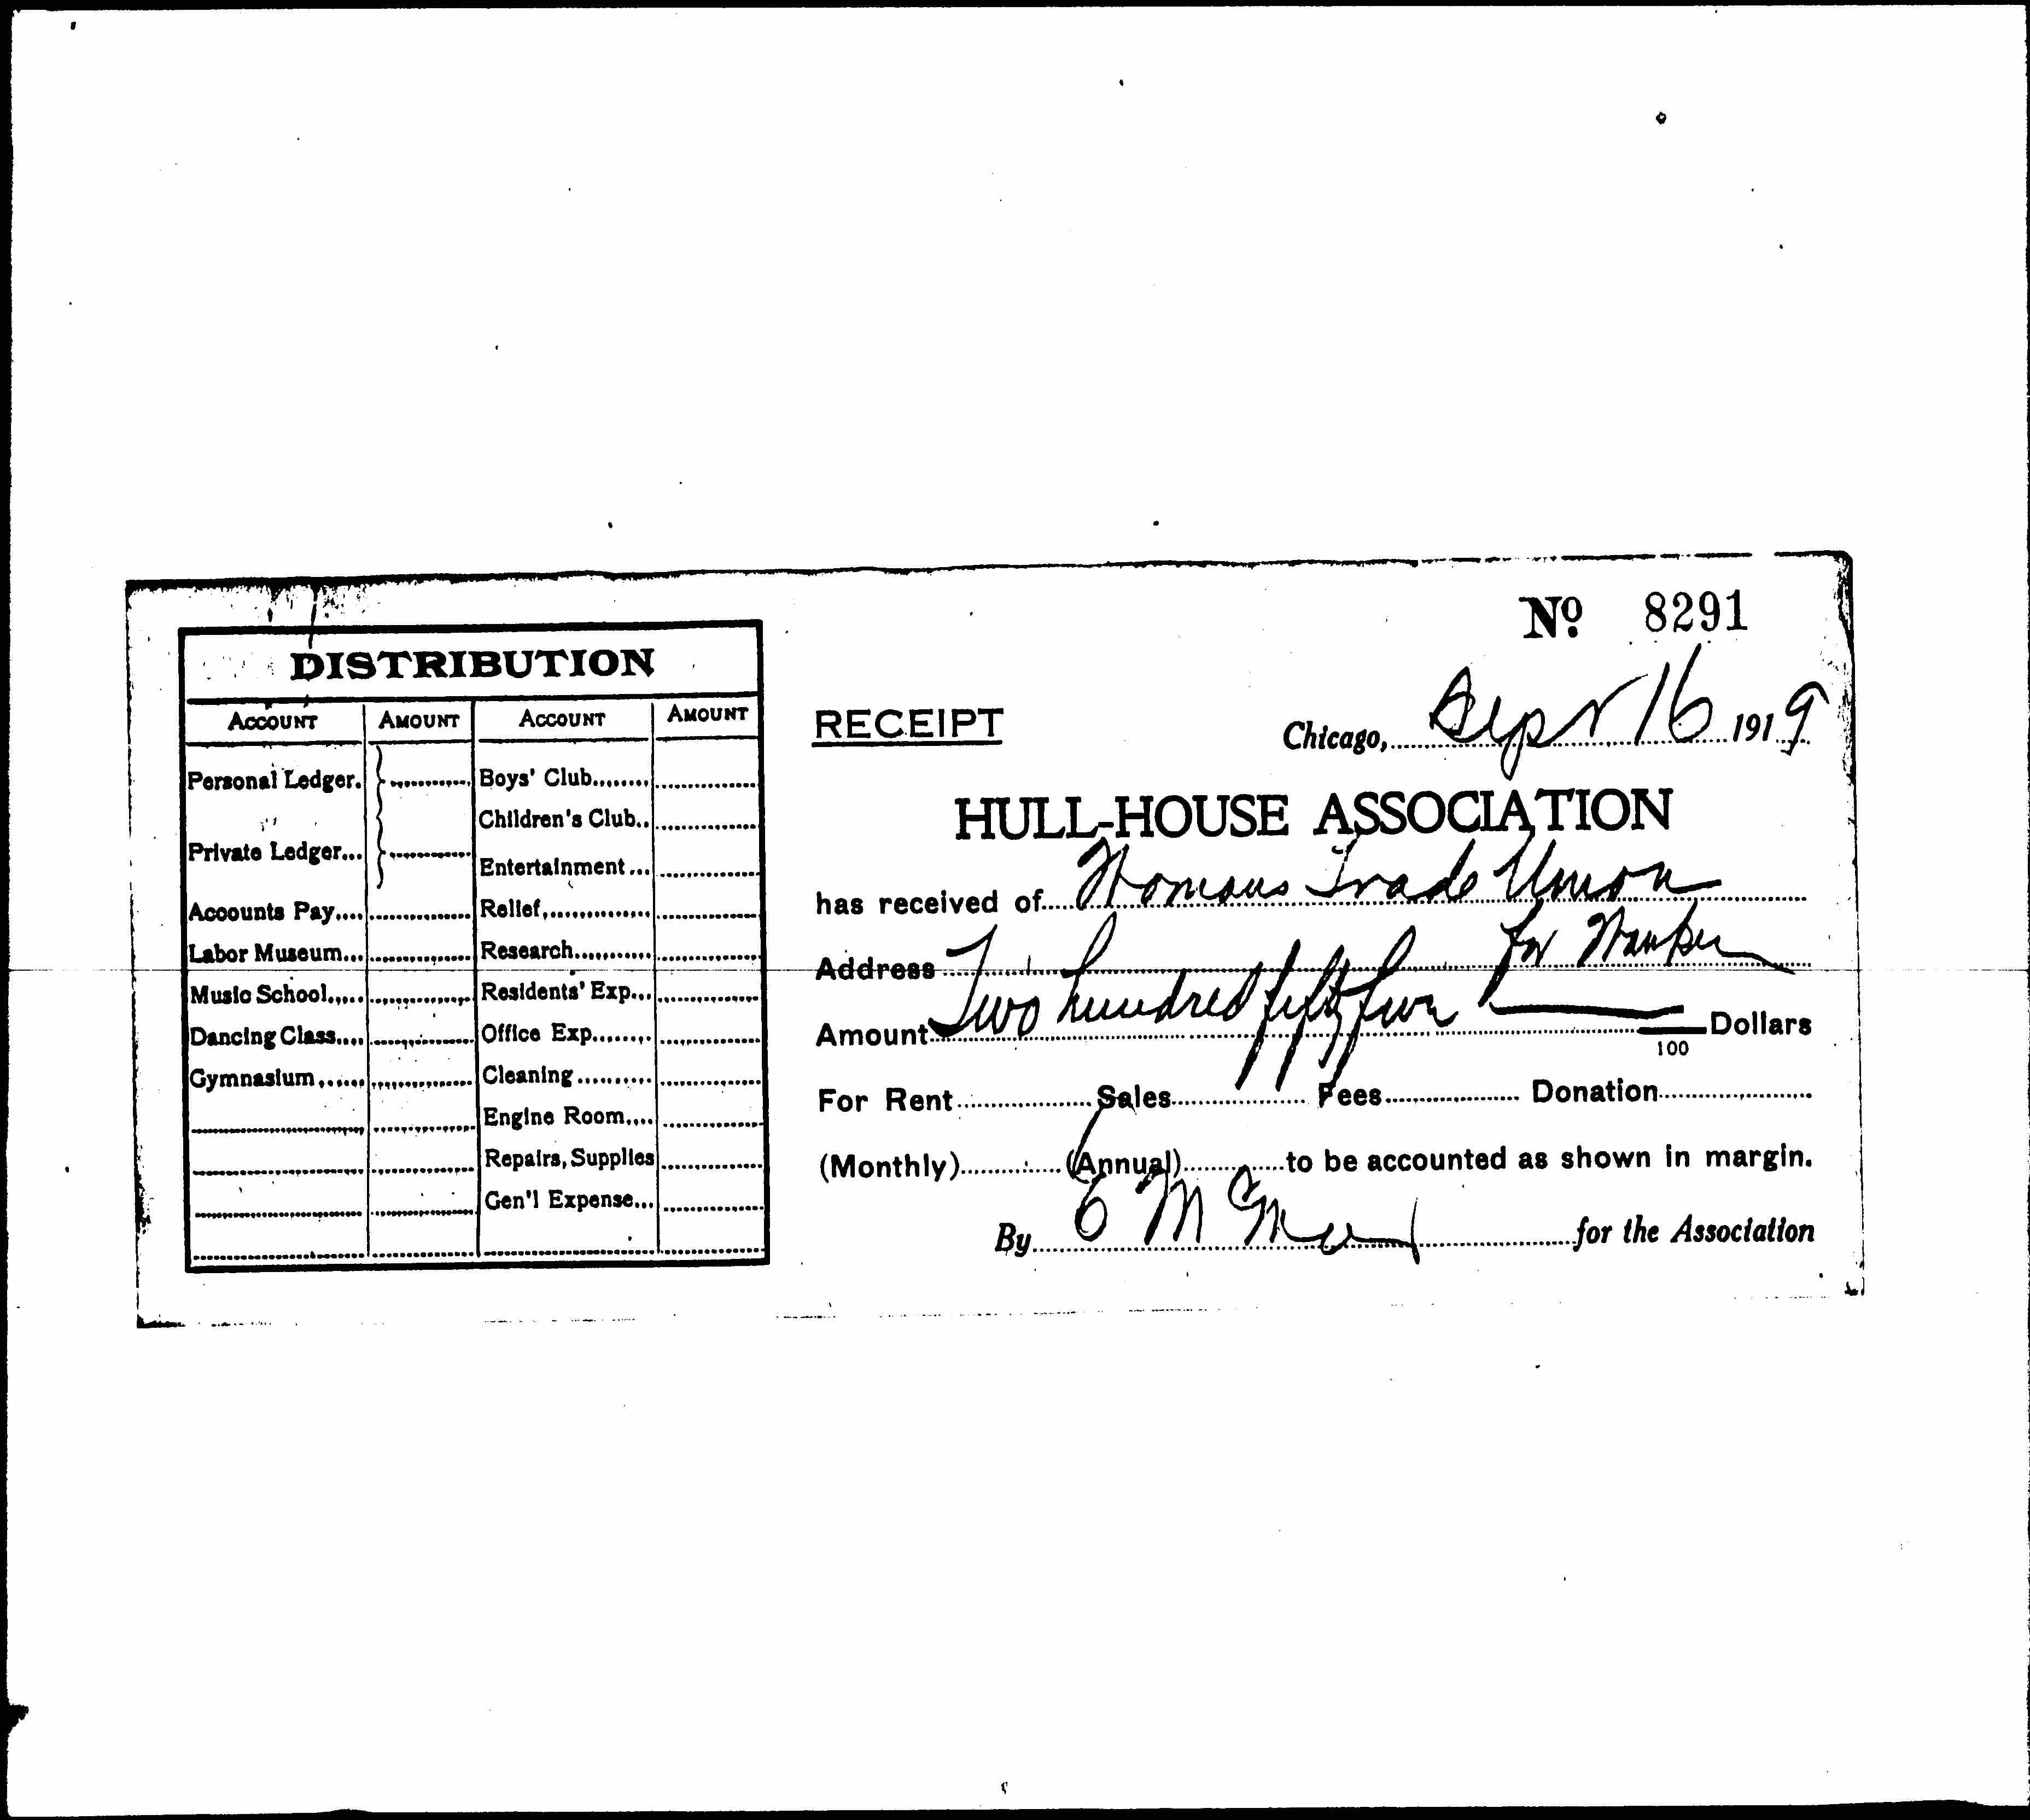 DISTRIBUTION
ACCOUNT AMOUNT ACCOUNT AMOUNT
Personal Ledger.
Private Ledger...
Accounts Pay....
Labor Museum...
Music School.....
Dancing Class....
Gymnasium......
Boys' Club........
Children's Club..
Entertainment...
Relief...............
Research...........
Residents' Exp...
Office Exp........
Cleaning..........
Engine Room....
Repairs, Supplies
Gen'l Expense...
Nº 8291
RECEIPT
Chicago, Sept 16 1919
HULL-HOUSE ASSOCIATION
has received of Womans Trade Union
Address for
Amount Two hundred fifty five Dollars
100
For Rent Sales Fees Donation
(Monthly) (Annual) to be accounted as shown in margin.
By for the Association